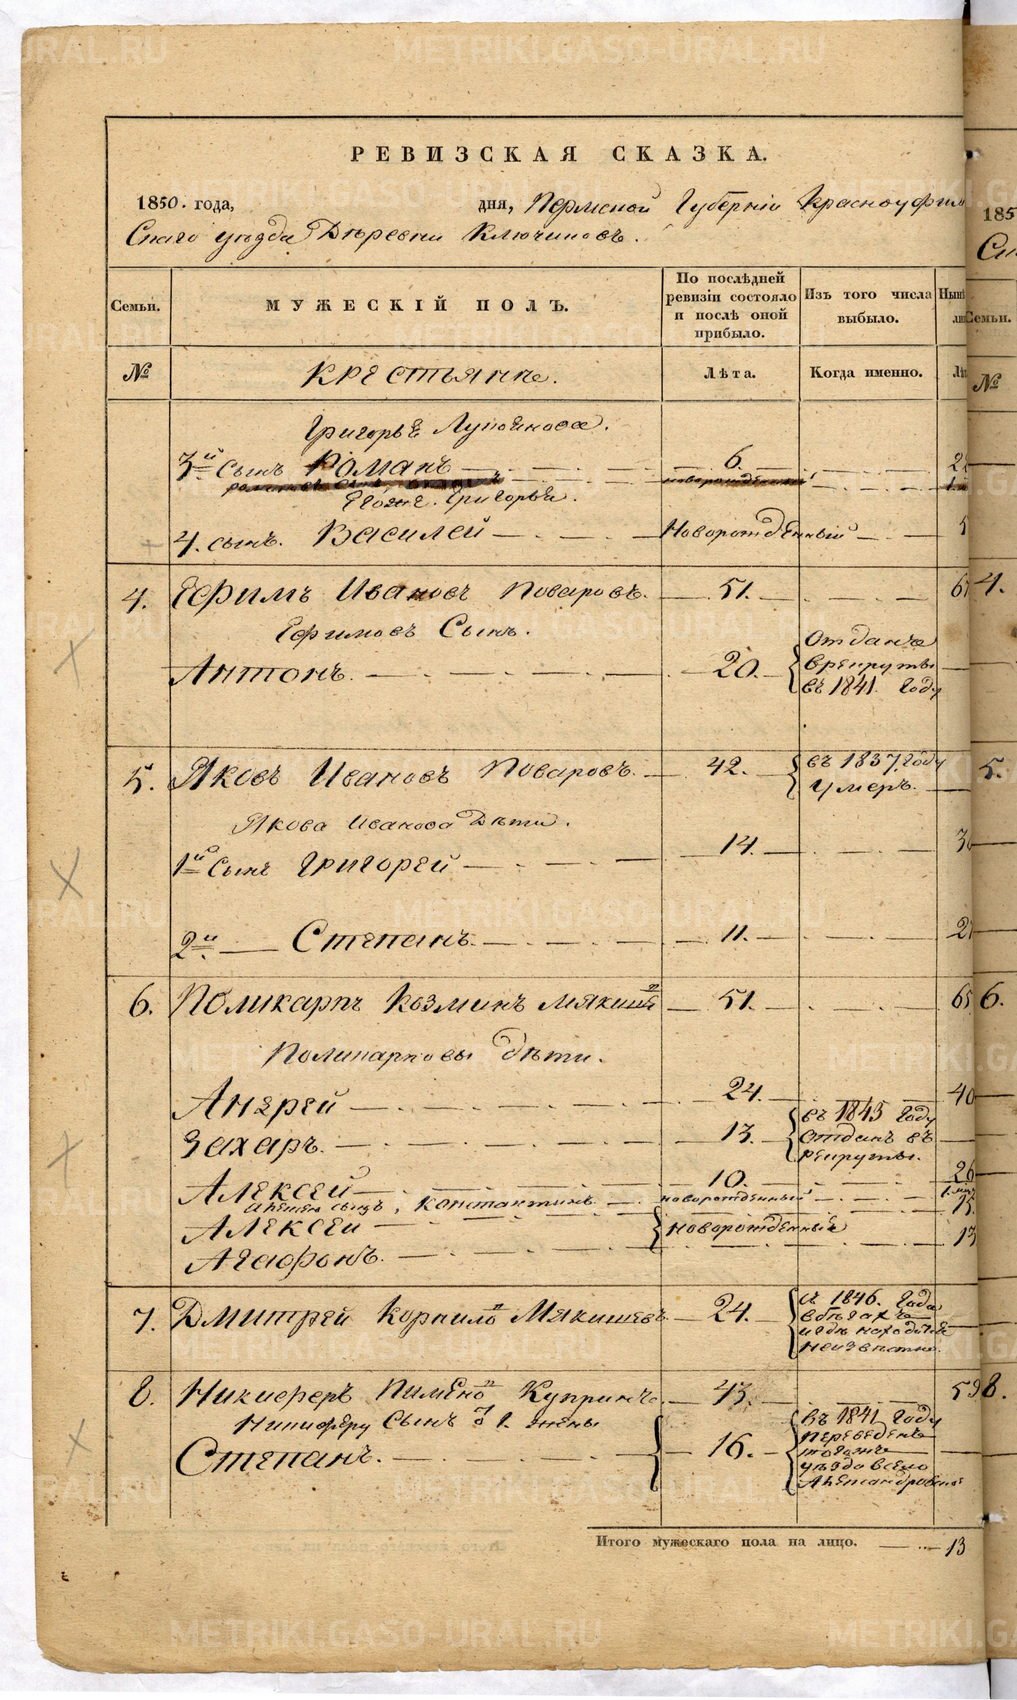 РЕВИЗСКАЯ СКАЗКА.
1850. года, дня, Пермской Губернiи Красноуфим
Скаго уѣзда Дѣревни Ключиковъ.
Семьи. МУЖЕСКIЙ ПОЛЪ. По послѣдней ревизiи состояло и послѣ оной прибыло. Изъ того числа выбыло.
№ Крестьянне. Лѣта. Когда именно.
Григорья Лупоянова.
3й Сынъ Романъ 6.
новорожденный
Егоже Григорья.
4. сынъ. Василей Новорожденный 5
4. Ефимъ Ивановъ Поваровъ. 51. 67
Ефимовъ Сынъ.
Антонъ. 20. Отданъ в рекруты въ 1841 году
5. Яковъ Ивановъ Поваровъ. 42. въ 1837 году Умеръ.
Якова Иванова Дѣти.
1й Сынъ Григорей 14. 30
2й Степанъ. 11. 27
6. Поликарпъ Козминъ Мякише 51. 65
Поликарповы дѣти.
Андрей 24. 40
Захаръ. 13. въ 1845 году Отданъ въ рекруты.
Алексей 10. 26
сынъ, Константинъ новорожденный
Алексеи новорожденные 15.
Агафонъ. 13
7. Дмитрей Корнило Мякишевъ 24. съ 1846. года в бѣгахъ и гдѣ находится неизвѣстно.
8. Никиферъ Пимено Купринъ. 43. 59
Никиферу Сынъ 1. жены
Степанъ. 16. Въ 1841 году переведенъ тогожъ уѣзда в село Александровское
Итого мужескаго пола на лицо. 13
185
Семьи.
№
4.
5.
6.
8.
METRIKI.GASO-URAL.RU